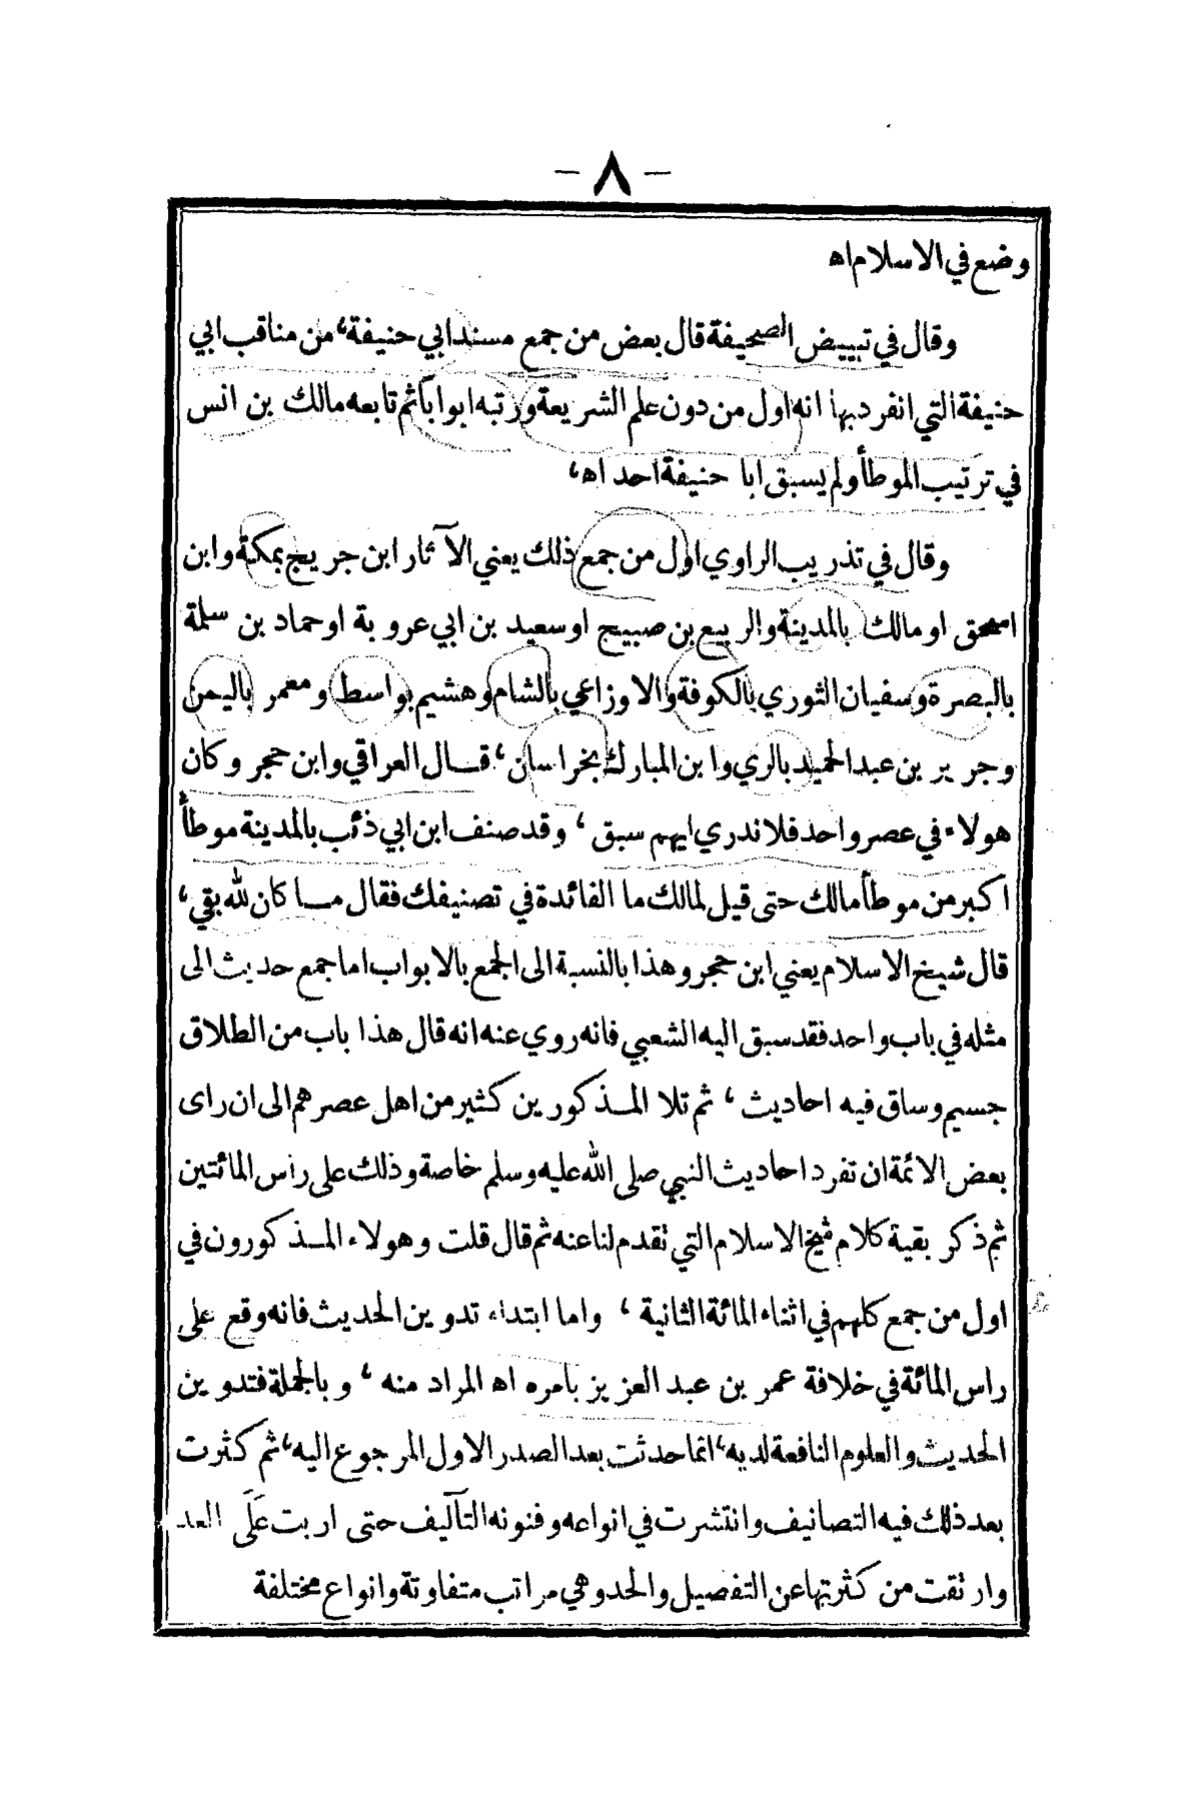 - ٨ -
وضع في الاسلام اه
وقال في تبييض الصحيفة قال بعض من جمع مسند ابي حنيفة، من مناقب ابي
حنيفة التي انفرد بها انه اول من دون علم الشريعة ورتبه ابوابا ثم تابعه مالك بن انس
في ترتيب الموطأ ولم يسبق ابا حنيفة احد اه،
وقال في تذريب الراوي اول من جمع ذلك يعني الآثار ابن جريج بمكة وابن
اسحق او مالك بالمدينة والربيع بن صبيح او سعيد بن ابي عروبة او حماد بن سلمة
بالبصرة وسفيان الثوري بالكوفة والاوزاعي بالشام وهشيم بواسط ومعمر باليمن
وجرير بن عبد الحميد بالري وابن المبارك بخراسان، قال العراقي وابن حجر وكان
هولاء في عصر واحد فلا ندري ايهم سبق، وقد صنف ابن ابي ذئب بالمدينة موطأ
اكبر من موطأ مالك حتى قيل لمالك ما الفائدة في تصنيفك فقال ما كان لله بقي،
قال شيخ الاسلام يعني ابن حجر وهذا بالنسبة الى الجمع بالابواب اما جمع حديث الى
مثله في باب واحد فقد سبق اليه الشعبي فانه روي عنه انه قال هذا باب من الطلاق
جسيم وساق فيه احاديث، ثم تلا المذكورين كثير من اهل عصرهم الى ان راى
بعض الائمة ان تفرد احاديث النبي صلى الله عليه وسلم خاصة وذلك على راس المائتين
ثم ذكر بقية كلام شيخ الاسلام التي تقدم لنا عنه ثم قال قلت وهولاء المذكورون في
اول من جمع كلهم في اثناء المائة الثانية، واما ابتداء تدوين الحديث فانه وقع على
راس المائة في خلافة عمر بن عبد العزيز بامره اه المراد منه، وبالجملة فتدوين
الحديث والعلوم النافعة لديه، انما حدثت بعد الصدر الاول المرجوع اليه، ثم كثرت
بعد ذلك فيه التصانيف وانتشرت في انواعه وفنونه التآليف حتى اربت عَلَى العد
وارتقت من كثرتها عن التفصيل والحد وهي مراتب متفاوتة وانواع مختلفة